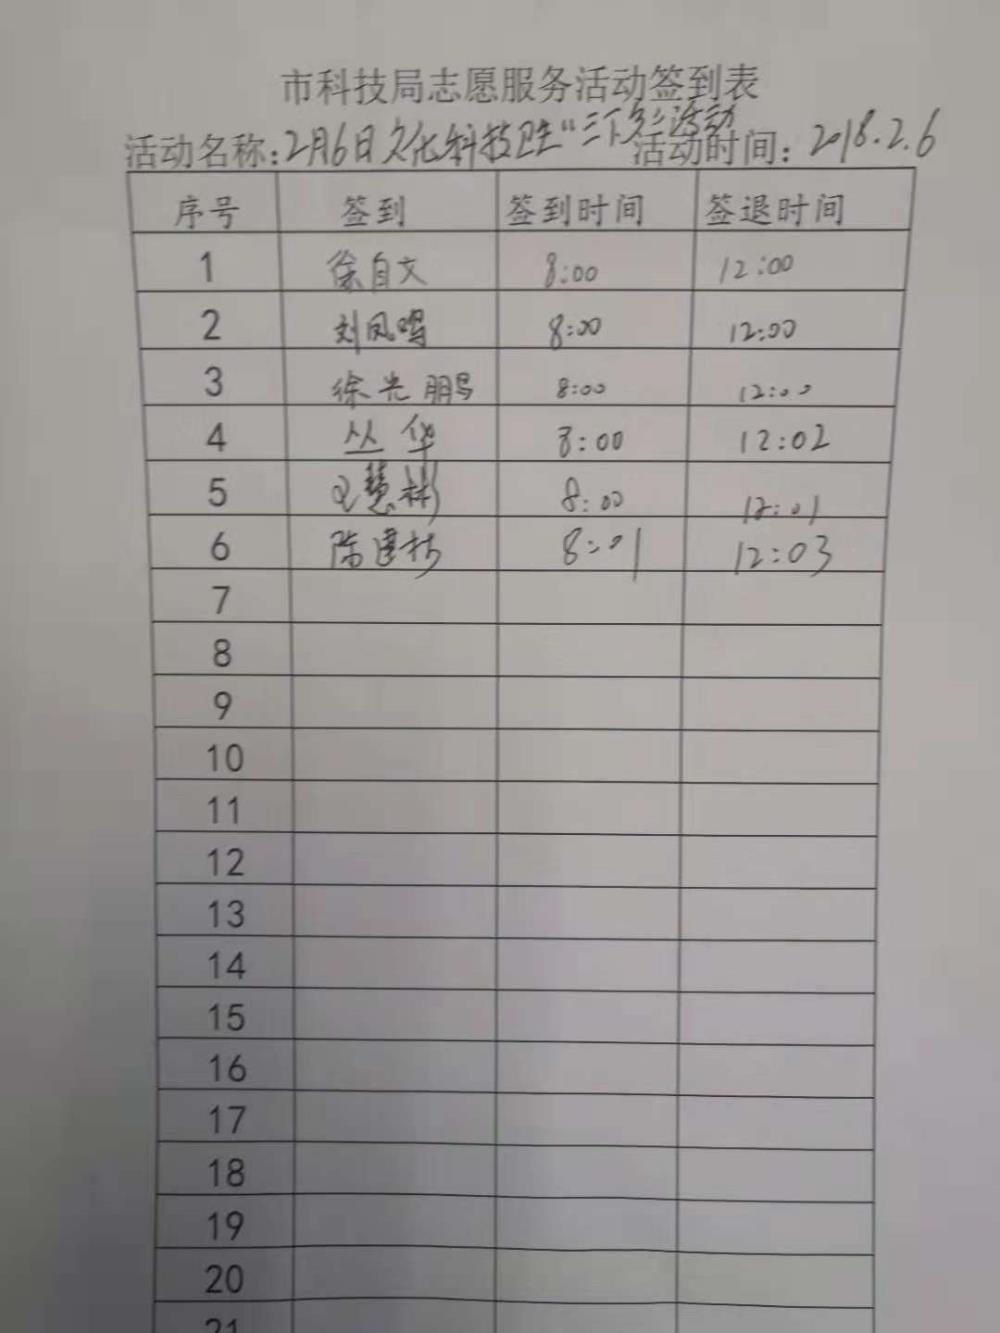 市科技局志愿服务活动签到表
活动名称:2月6日文化科技卫生“三下乡”活动 活动时间:2018.2.6
序号 签到 签到时间 签退时间
1 徐自文 8:00 12:00
2 刘凤鸣 8:00 12:00
3 徐光鹏 8:00 12:00
4 丛华 8:00 12:02
5 慧彬 8:00 12:01
6 陈建 8:01 12:03
7
8
9
10
11
12
13
14
15
16
17
18
19
20
21